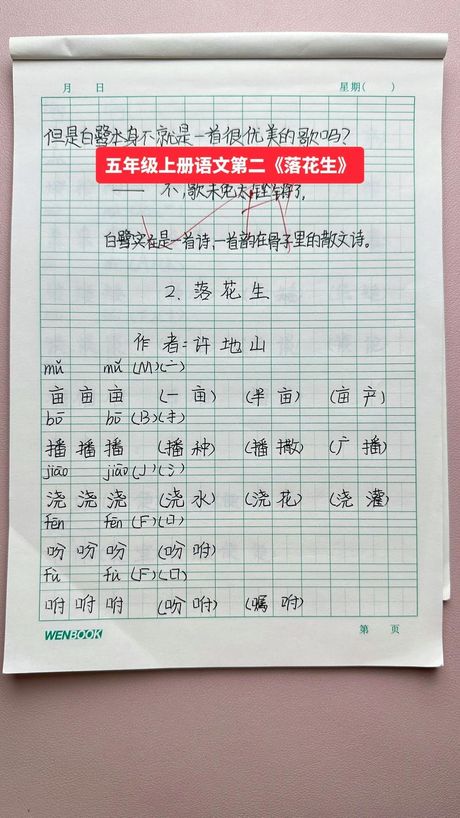 月 日 星期( )
但是白鹭本身不就是一首很优美的歌吗?
五年级上册语文第二《落花生》
—— 不,歌未免太铿锵了。
白鹭实在是一首诗,一首韵在骨子里的散文诗。
2. 落花生
作者:许地山
mǔ mǔ (M)(亠)
亩 亩 亩 (一亩) (半亩) (亩产)
bō bō (B)(扌)
播 播 播 (播种) (播撒) (广播)
jiāo jiāo (J)(氵)
浇 浇 浇 (浇水) (浇花) (浇灌)
fēn fēn (F)(口)
吩 吩 吩 (吩咐)
fù fù (F)(口)
咐 咐 咐 (吩咐) (嘱咐)
WENBOOK 第 页